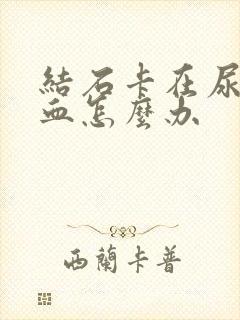 結石卡在尿
血怎麼办
西蘭卡普